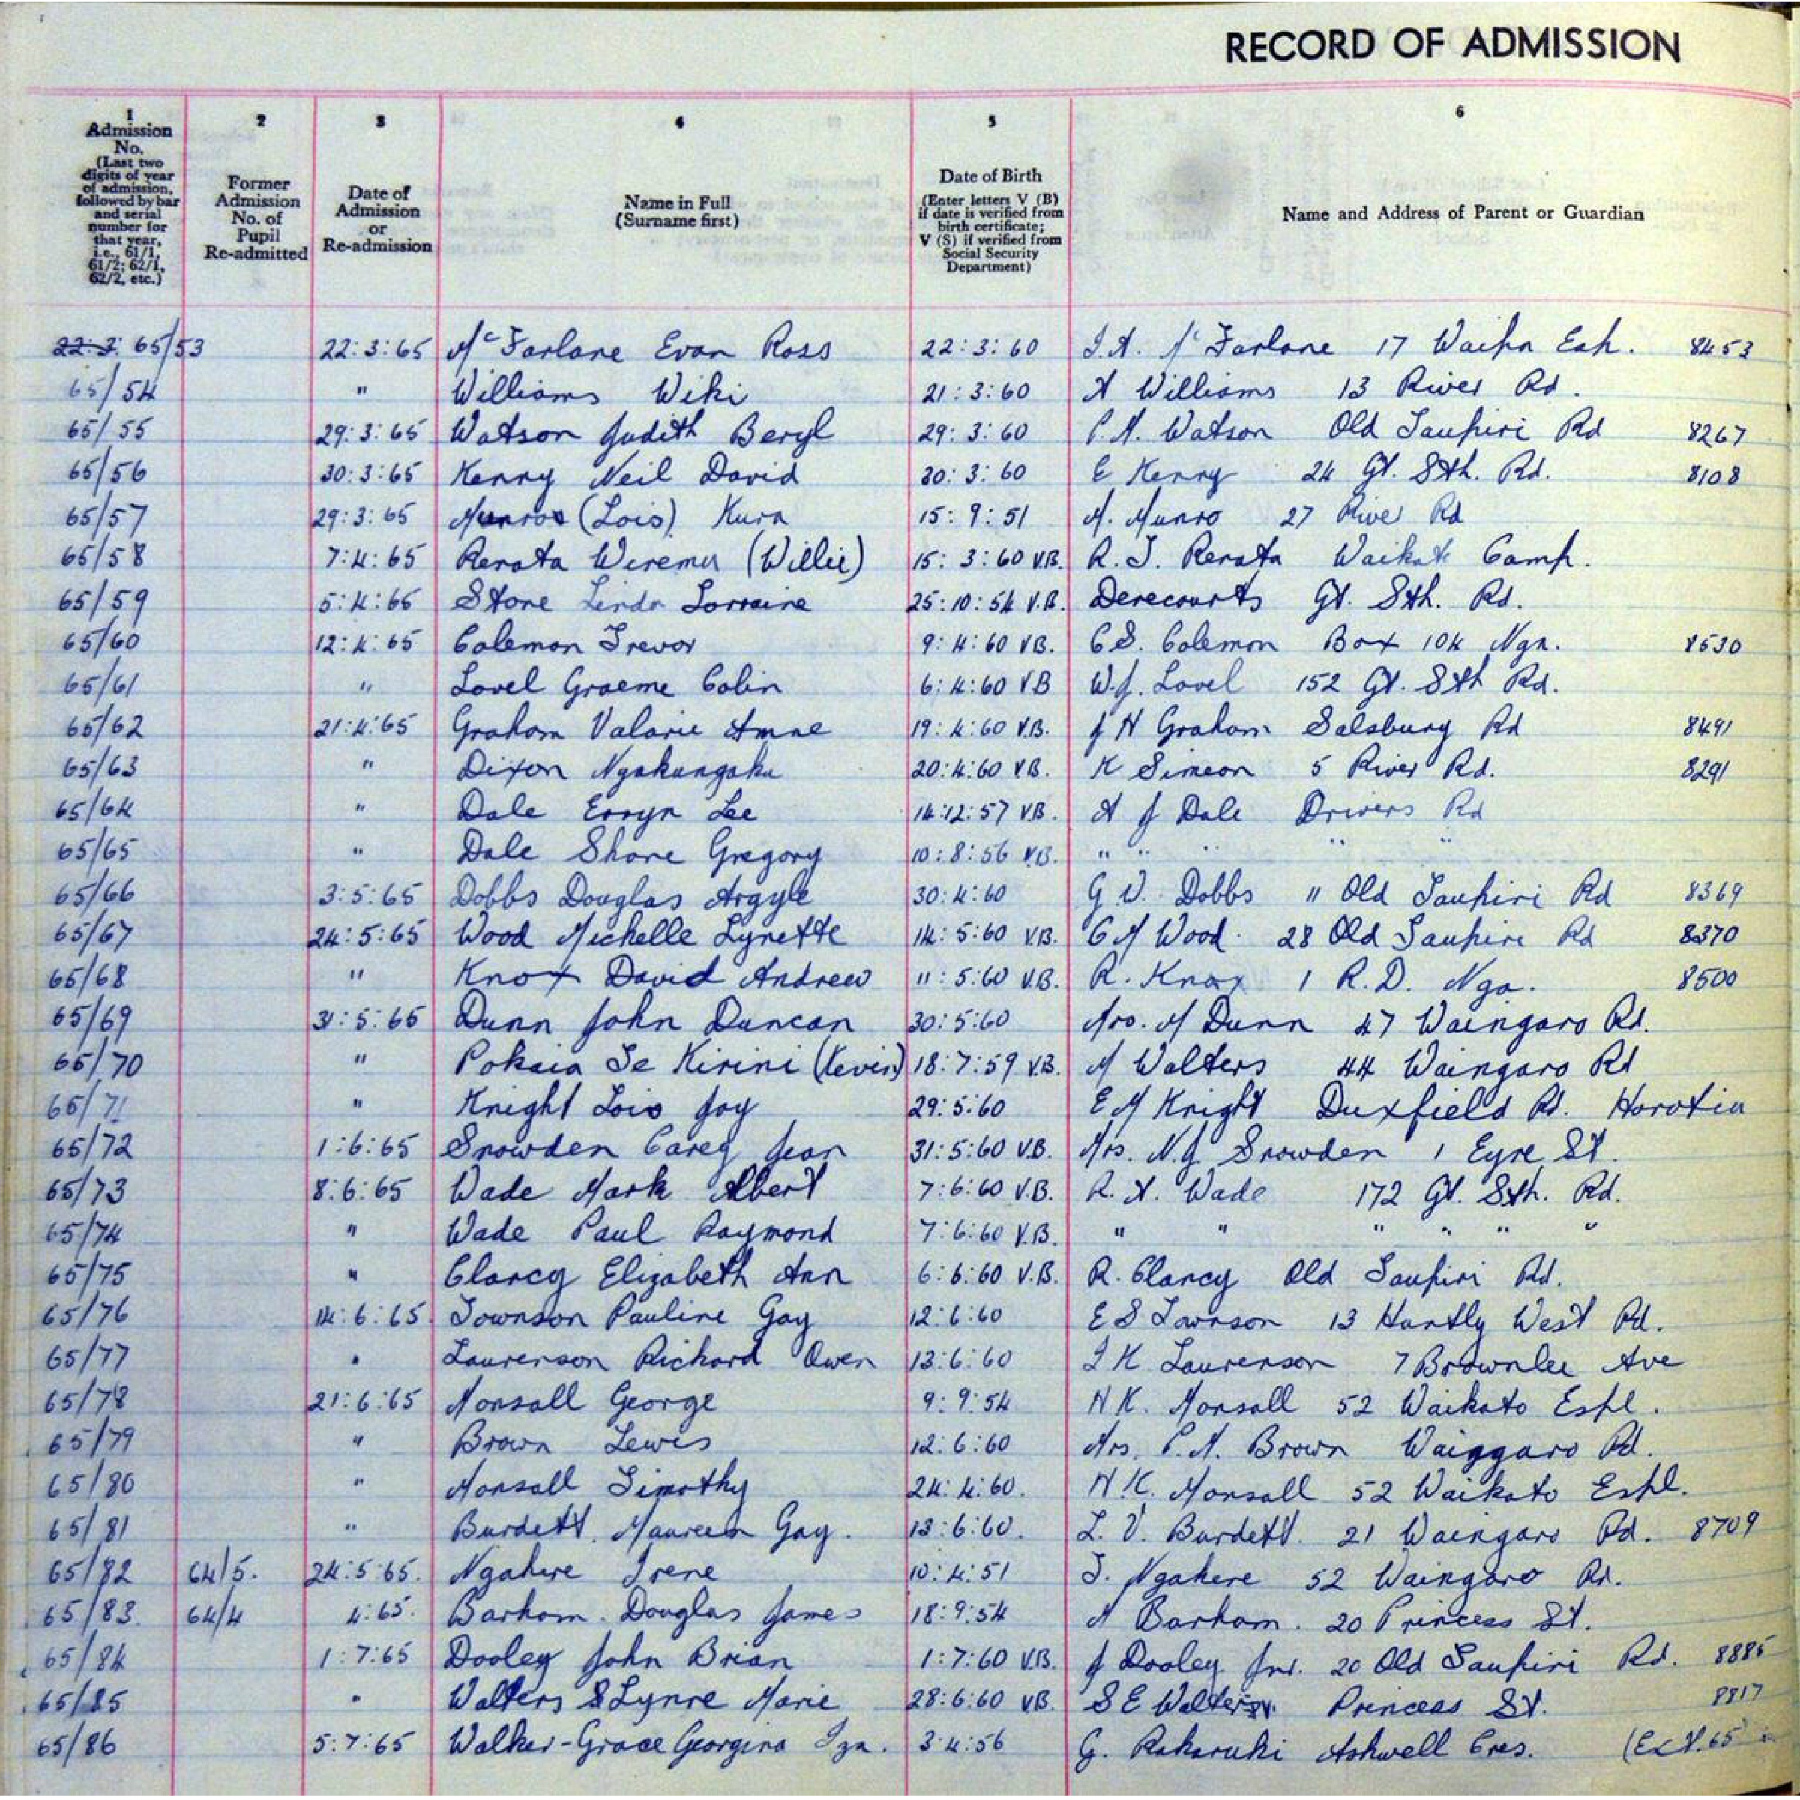 RECORD OF ADMISSION
1 2 3 4 5 6
Admission No. (Last two digits of year of admission, followed by bar and serial number for that year, i.e., 61/1, 61/2; 62/1, 62/2, etc.)
Former Admission No. of Pupil Re-admitted
Date of Admission or Re-admission
Name in Full (Surname first)
Date of Birth (Enter letters V (B) if date is verified from birth certificate; V (S) if verified from Social Security Department)
Name and Address of Parent or Guardian
22:3: 65/53 22:3:65 McFarlane Evan Ross 22:3:60 McFarlane 17 Waipa Esp. 8453
65/54 " Williams Wiki 21:3:60 Williams 13 River Rd.
65/55 29:3:65 Watson Judith Beryl 29:3:60 Watson Old Taupiri Rd 8267
65/56 30:3:65 Kenny Neil David 30:3:60 E Kenny 24 Gt. Sth. Rd. 8108
65/57 29:3:65 Munroe (Lois) Kura 15:9:51 M. Munro 27 River Rd
65/58 7:4:65 Renata Wiremu (Willie) 15:3:60 V.B. R. T. Renata Waikato Camp.
65/59 5:4:65 Stone Linda Lorraine 25:10:54 V.B. Derecourts Gt. Sth. Rd.
65/60 12:4:65 Coleman Trevor 9:4:60 V.B. C.S. Coleman Box 104 Nga. 8530
65/61 " Lovel Graeme Colin 6:4:60 V.B W.J. Lovel 152 Gt. Sth Rd.
65/62 21:4:65 Graham Valarie Anne 19:4:60 V.B. J H Graham Salsbury Rd 8491
65/63 " Dixon Ngakangaha 20:4:60 V.B. K Simeon 5 River Rd. 8291
65/64 " Dale Erryn Lee 14:12:57 V.B. A J Dale Drivers Rd
65/65 " Dale Shane Gregory 10:8:56 V.B. " " " " "
65/66 3:5:65 Dobbs Douglas Argyle 30:4:60 G V. Dobbs 11 Old Taupiri Rd 8369
65/67 24:5:65 Wood Michelle Lynette 14:5:60 V.B. C M Wood. 28 Old Taupiri Rd 8370
65/68 " Knox David Andrew 11:5:60 V.B. R. Knox 1 R.D. Nga. 8500
65/69 31:5:65 Dunn John Duncan 30:5:60 Mrs. M Dunn 47 Waingaro Rd.
65/70 " Pokaia Te Kirini (Kevin) 18:7:59 V.B. M Walters 44 Waingaro Rd
65/71 " Knight Lois Joy 29:5:60 E M Knight Duxfield Rd. Horotiu
65/72 1:6:65 Snowden Carey Jean 31:5:60 V.B. Mrs. N.J Snowden 1 Eyre St.
65/73 8:6:65 Wade Mark Albert 7:6:60 V.B. R. A. Wade 172 Gt. Sth. Rd.
65/74 " Wade Paul Raymond 7:6:60 V.B. " " " " " "
65/75 " Clancy Elizabeth Ann 6:6:60 V.B. R. Clancy Old Taupiri Rd.
65/76 14:6:65 Townson Pauline Gay 12:6:60 E S Townson 13 Huntly West Rd.
65/77 " Laurenson Richard Owen 13:6:60 Laurenson 7 Brownlee Ave
65/78 21:6:65 Monsall George 9:9:54 H K. Monsall 52 Waikato Espl.
65/79 " Brown Lewis 12:6:60 Mrs. P. A. Brown Waingaro Rd.
65/80 " Monsall Timothy 24:4:60. H.K. Monsall 52 Waikato Espl.
65/81 " Burdett Maureen Gay. 13:6:60. L. V. Burdett. 21 Waingaro Rd. 8709
65/82 64/5. 24:5:65. Ngakere Irene 10:4:51 T. Ngakere 52 Waingaro Rd.
65/83. 64/4 4:65. Barham. Douglas James 18:9:54 A Barham. 20 Princess St.
65/84 1:7:65 Dooley John Brian 1:7:60 V.B. J Dooley Jnr. 20 Old Taupiri Rd. 8885
65/85 " Walters Lynne Marie 28:6:60 V.B. S E Walters Princess St. 8817
65/86 5:7:65 Walker-Grace Georgina Iza. 3:4:56 G. Rakaruhi Ashwell Cres.